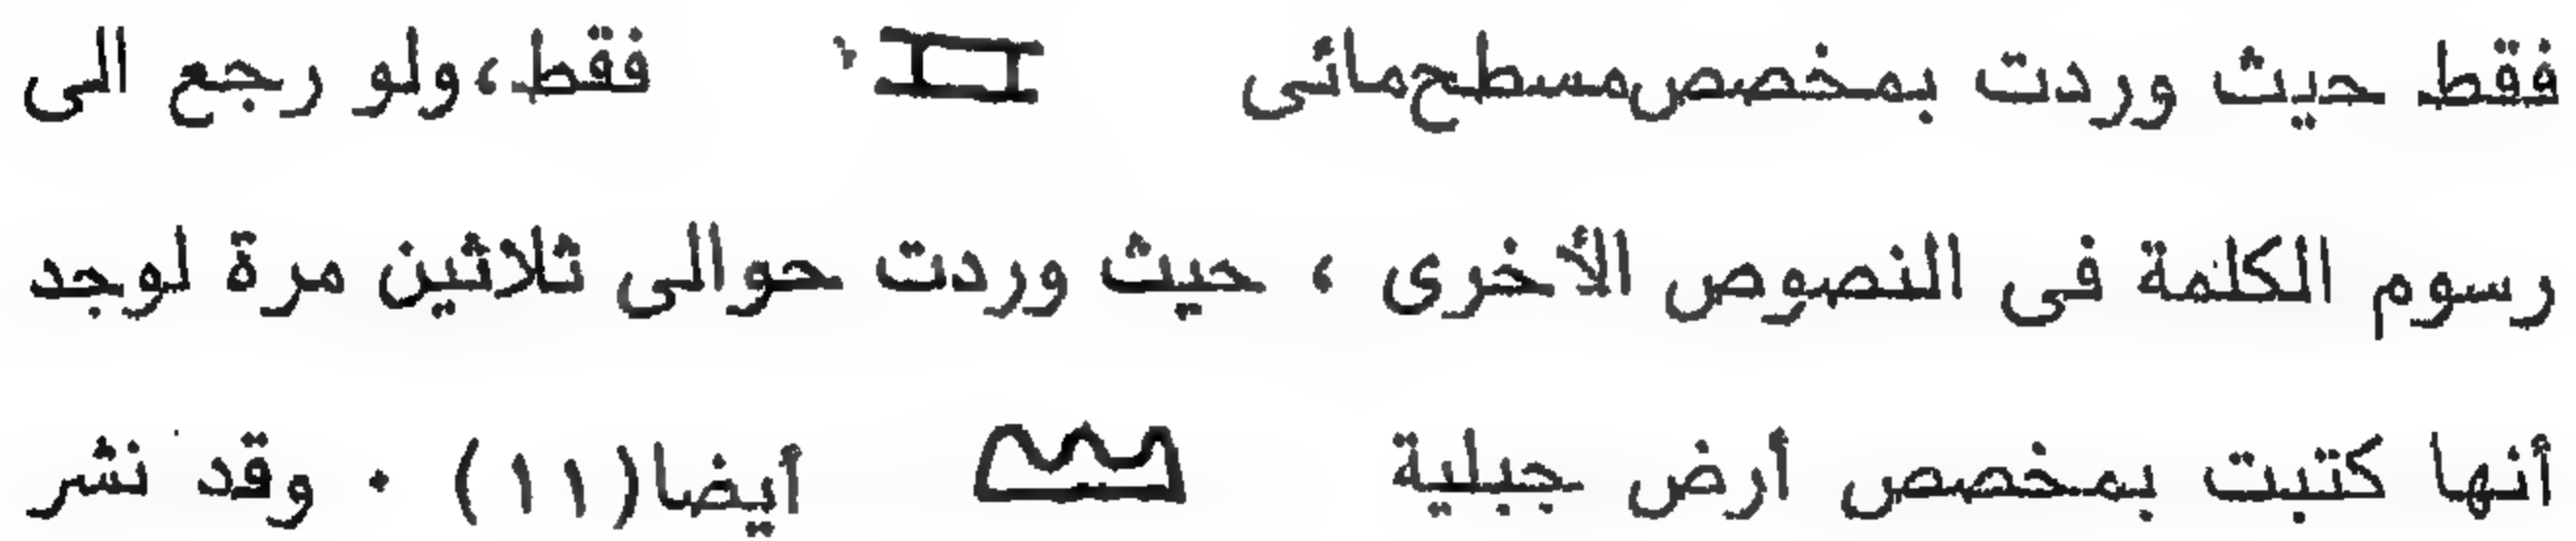 فقط حيث وردت بمخصص مسطح مائى 𓈘 فقط، ولو رجع الى
رسوم الكلمة فى النصوص الأخرى ، حيث وردت حوالى ثلاثين مرة لوجد
أنها كتبت بمخصص أرض جبلية 𓈉 أيضا(١١) . وقد نشر